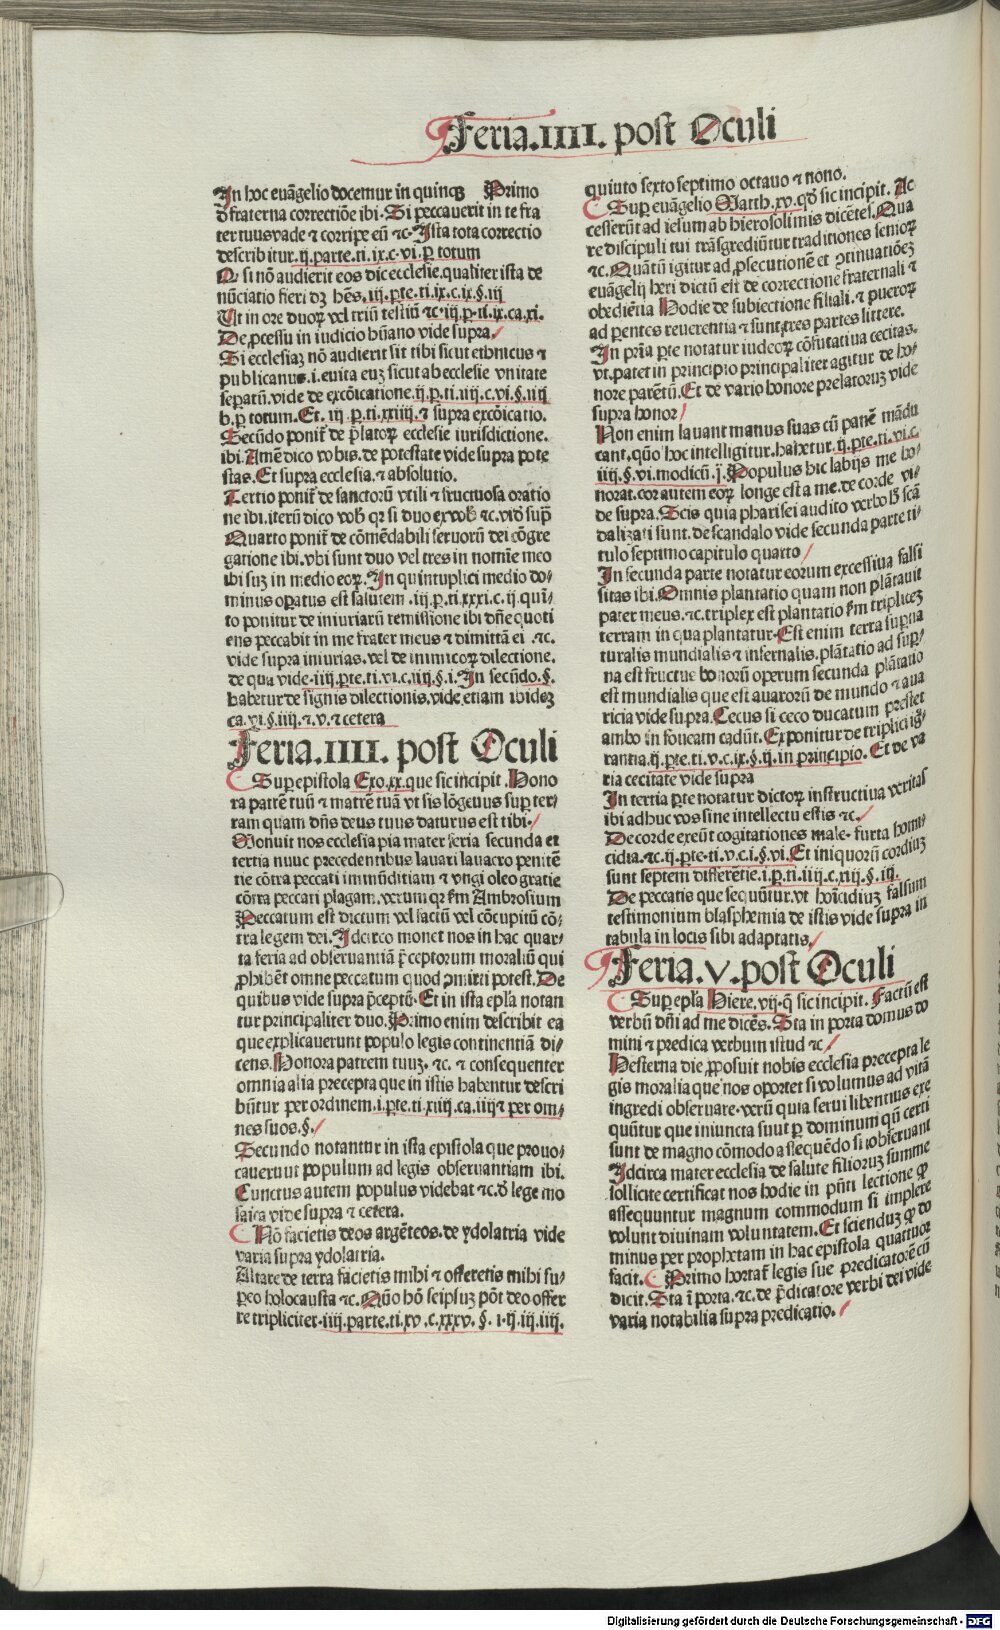 Feria.IIII. post Oculi
In hoc euãgelio docemur in quinqꝫ Primo
ď fraterna correctiõe ibi. Si peccauerit in te fra
ter tuus vade ⁊ corripe eũ ⁊c. Ista tota correctio
describitur.ij.parte.ti.ix.c.vi.ꝑ totum
Q si nõ audierit eos dic ecclesie.qualiter ista de
nũciatio fieri dꝫ hẽs.iij.ꝑte.ti.ix.c.ix.§.iij
Ut in ore duoꝝ vel triũ testiũ ⁊c.iij.ꝑ.ti.ix.ca.xi.
De ꝓcessu in iudicio hũano vide supra.
Si ecclesiaꝫ nõ audierit sit tibi sicut ethnicus ⁊
publicanus.i.euita euꝫ sicut ab ecclesie vnitate
seꝑatũ.vide de excõicatione.ij.ꝑ.ti.iij.c.vi.§.iiij
b.ꝑ totum. Et. iij.ꝑ.ti.xxiiij.⁊ supra excõicatio.
Secũdo ponit̃ de p̃latoꝝ ecclesie iurisdictione.
ibi. Amẽ dico vobis.de potestate vide supra pote
stas. Et supra ecclesia.⁊ absolutio.
Tertio ponit̃ de sanctorũ vtili ⁊ fructuosa oratio
ne ibi.iterũ dico vob̃ qꝛ si duo ex vob̃ ⁊c.vid̃ sup̃
Quarto ponit̃ de cõmẽdabili seruorũ dei cõgre
gatione ibi.vbi sunt duo vel tres in nomĩe meo
ibi suꝫ in medio eoꝝ. In quintuplici medio do⸗
minus oꝑatus est salutem .iij.ꝑ.ti.xxxi.c.ij.qui⸗
to ponitur de iniuriarũ remissione ibi dñe quoti
ens peccabit in me frater meus ⁊ dimittã ei .⁊c.
vide supra iniurias.vel de inimicoꝝ dilectione.
de qua vide.iiij.ꝑte.ti.vi.c.iiij.§.i. In secũdo.§.
habetur de signis dilectionis.vide etiam ibideꝫ
ca.vi.§.iiij.⁊.v.⁊ cetera
Feria.IIII. post Oculi
Suꝑ epistola Exo.xx.que sic incipit. Hono
ra patrẽ tuũ ⁊ matrẽ tuã vt sis lõgeuus suꝑ ter⸗
ram quam dñs deus tuus daturus est tibi.
Monuit nos ecclesia pia mater feria secunda et
tertia nunc precedentibus lauari lauacro penitẽ
tie cõtra peccati immũditiam ⁊ vngi oleo gratie
cõtra peccati plagam.verum qꝛ ẜm Ambrosium
Peccatum est dictum vel factũ vel cõcupitũ cõ⸗
tra legem dei. Idcirco monet nos in hac quar⸗
ta feria ad obseruantiã p̃ceptorum moraliũ qui
ꝓhibẽt omne peccatum quod ꝯmitti potest. De
quibus vide supra p̃ceptũ. Et in ista ep̃la notan
tur principaliter duo. Primo enim describit ea
que explicauerunt populo legis continentiã di⸗
cens. Honora patrem tuuꝫ. ⁊c. ⁊ consequenter
omnia alia precepta que in istis habentur descri
bũntur per ordinem.i.ꝑte.ti.xiiij.ca.iiij⁊ per om⸗
nes suos.§.
Secundo notantur in ista epistola que prouo⸗
cauerunt populum ad legis obseruantiam ibi.
Cunctus autem populus videbat ⁊c.ď lege mo
saica vide supra ⁊ cetera.
Nõ facietis deos argẽteos.de ydolatria vide
varia supra ydolatria.
Altare de terra facietis mihi ⁊ offeretis mihi su⸗
ꝑ eo holocausta ⁊c. Quõ hõ seipsuꝫ põt deo offer
re tripliciter.iiij.parte.ti.xv.c.xxxv. §. i.ij.iij.iiij.
quinto sexto septimo octauo ⁊ nono.
Suꝑ euãgelio Matth.xv.qď sic incipit. Ac
cesserũt ad iesum ab hierosolimis dicẽtes. Qua
re discipuli tui trãsgrediũtur traditiones senioꝝ
⁊c. Quãtũ igitur ad ꝓsecutionẽ et ꝯtinuatiõeꝫ
euãgelij heri dictũ est de correctione fraternali ⁊
obediẽtia Hodie de subiectione filiali.⁊ pueroꝝ
ad pẽntes reuerentia ⁊ sunt tres partes littere.
In pria ꝑte notatur iudeoꝝ cõfutatiua cecitas.
vt patet in principio principaliter agitur de ho⸗
nore parẽtũ. Et de vario honore prelatoruꝫ vide
supra honor
Non enim lauant manus suas cũ panẽ mãdu
cant.quõ hoc intelligitur.habetur.ij.ꝑte.ti.vi.c.
iiij.§.vi.modicũ.j. Populus hic labijs me ho⸗
norat.cor autem eoꝝ longe est a me.de corde vi⸗
de supra. Scis quia pharisei audito verbo h̃ scã
dalizati sunt.de scandalo vide secunda parte ti⸗
tulo septimo capitulo quarto
In secunda parte notatur eorum excessiua falsi
sitas ibi. Omnis plantatio quam non plãtauit
pater meus.⁊c.triplex est plantatio ẜm triplicẽ
terram in qua plantatur. Est enim terra suꝑna
turalis mundialis ⁊ infernalis.plãtatio ad suꝑ⸗
na est fructus bonorũ operum secunda plãtatio
est mundialis que est auarorũ de mundo ⁊ aua
ricia vide supra. Cecus si ceco ducatum prestet
ambo in foueam cadũt. Exponitur de triplici ig⸗
rantia.ij.ꝑte.ti.v.c.ix.§.ij.in principio. Et de va
ria cecitate vide supra
In tertia ꝑte notatur dictoꝝ instructiua veritas
ibi adhuc vos sine intellectu estis ⁊c.
De corde exeũt cogitationes male. furta homi⸗
cidia.⁊c.ij.ꝑte.ti.v.c.i.§.vi. Et iniquorũ cordiuꝫ
sunt septem differẽtie.i.ꝑ.ti.iiij.c.xij.§.iij.
De peccatis que sequũtur.vt hoĩcidiuꝫ falsum
testimonium blasphemia de istis vide supra in
tabula in locis sibi adaptatis.
Feria.V.post Oculi
Suꝑ ep̃la Hiere.vij.q̃ sic incipit. Factũ est
verbũ dñi ad me dicẽs. Sta in porta domus do
mini ⁊ predica verbum istud ⁊c
Hesterna die ꝓposuit nobis ecclesia precepta le
gis moralia que nos oportet si volumus ad vitã
ingredi obseruare.verũ quia serui libentius exe
quũtur que iniuncta sunt ꝑ dominum qũ certi
sunt de magno cõmodo assequẽdo si obseruant
Idcirca mater ecclesia de salute filioruꝫ summe
sollicite certificat nos hodie in pñti lectione ꝙ
assequuntur magnum commodum si implere
volunt diuinam voluntatem. Et sciendũ ꝙ do
minus per prophetam in hac epistola quattuor
facit. Primo hortat̃ legis sue predicatorẽ cũ
dicit. Sta ĩ porta.⁊c.de p̃dicatore verbi dei vide
varia notabilia supra predicatio.
Digitalisierung gefördert durch die Deutsche Forschungsgemeinschaft - DFG